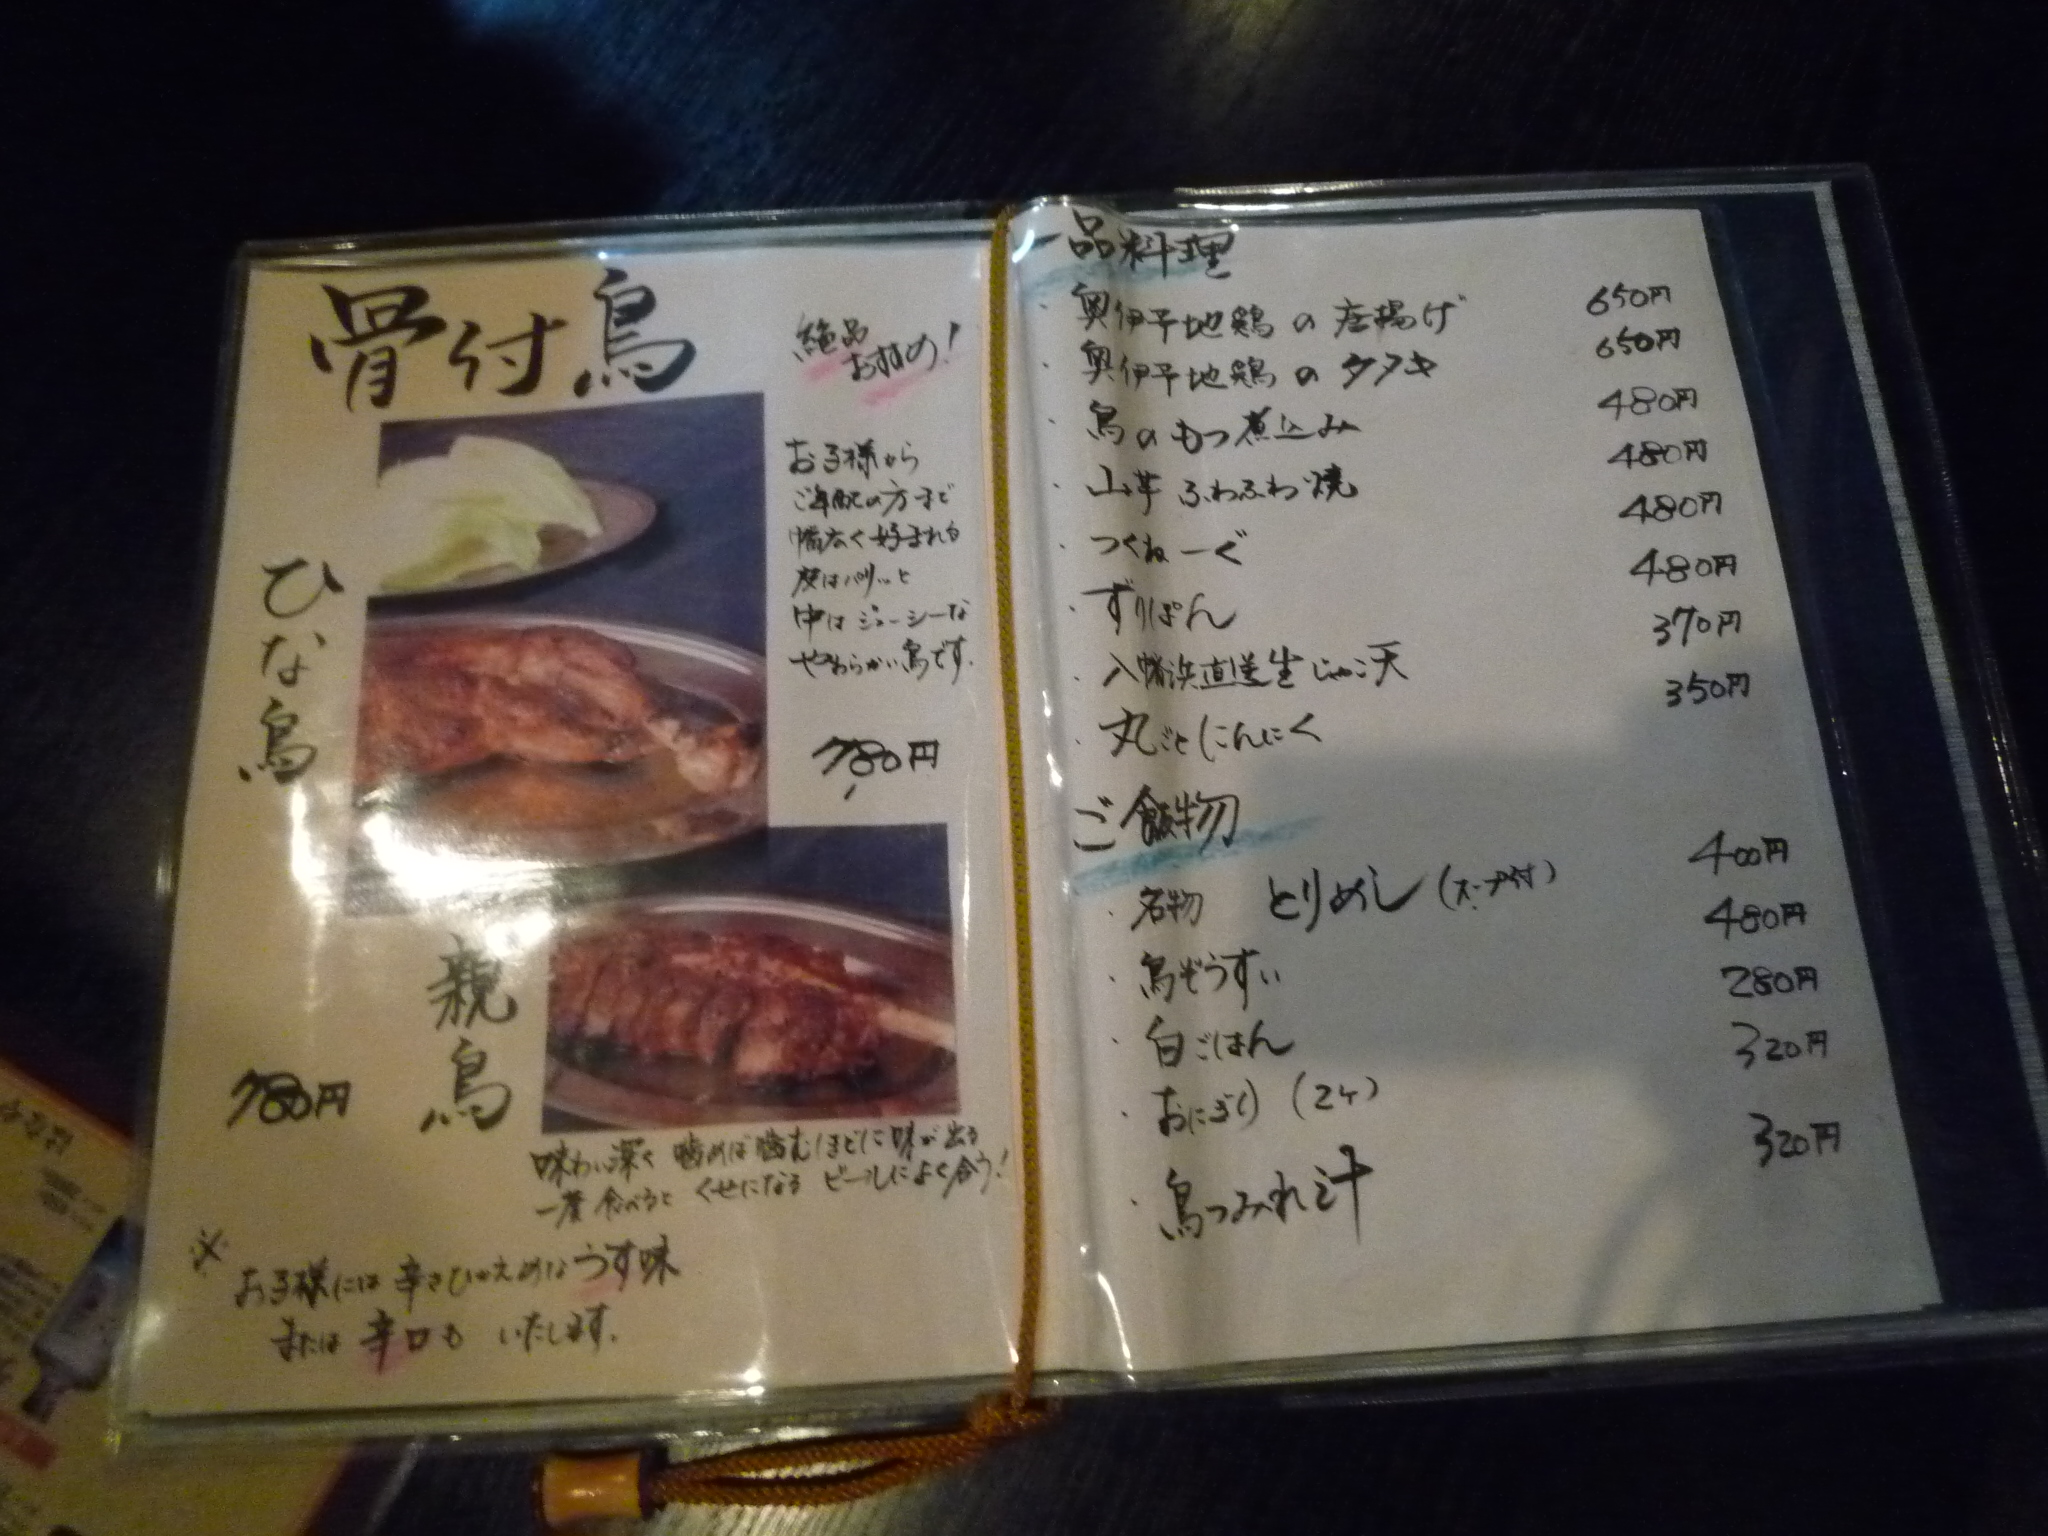 骨付鳥
絶品
おすすめ!
ひな鳥
お子様から
ご年配の方まで
幅広く好まれる
皮はパリッと
中はジューシーな
やわらかい鳥です.
780円
親鳥
780円
味わい深く 噛めば噛むほどに味が出る
一度食べると くせになる ビールによく合う!
※
お子様には辛さひかえめなうす味
または 辛口も いたします.
一品料理
・奥伊予地鶏の唐揚げ 650円
・奥伊予地鶏のタタキ 650円
・鳥のもつ煮込み 480円
・山芋ふわふわ焼 480円
・つくねーぐ 480円
・ずりぽん 480円
・八幡浜直送生じゃこ天 370円
・丸ごとにんにく 350円
ご飯物
・名物 とりめし(スープ付) 400円
・鳥ぞうすい 480円
・白ごはん 280円
・おにぎり (2ヶ) 320円
・鳥つみれ汁 320円